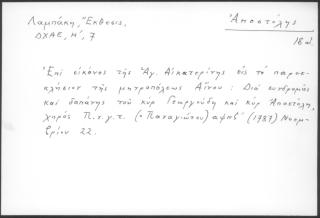 Λαμπάκη, "Έκθεσις,
ΔΧΑΕ, Η', 7
Ἀποστόλης
18 αἰ.
Ἐπὶ εἰκόνος τῆς Ἁγ. Αἰκατερίνης εἰς τὸ παρεκ-
κλήσιον τῆς μητροπόλεως Αἴνου : Διὰ συνδρομῆς
καὶ δαπάνης τοῦ κὺρ Γεωργούδη καὶ κὺρ Ἀποστόλη,
χειρὸς Π.ν.γ.τ. (= Παναγιώτου) αψπζ' (1787) Νοεμ-
βρίου 22.